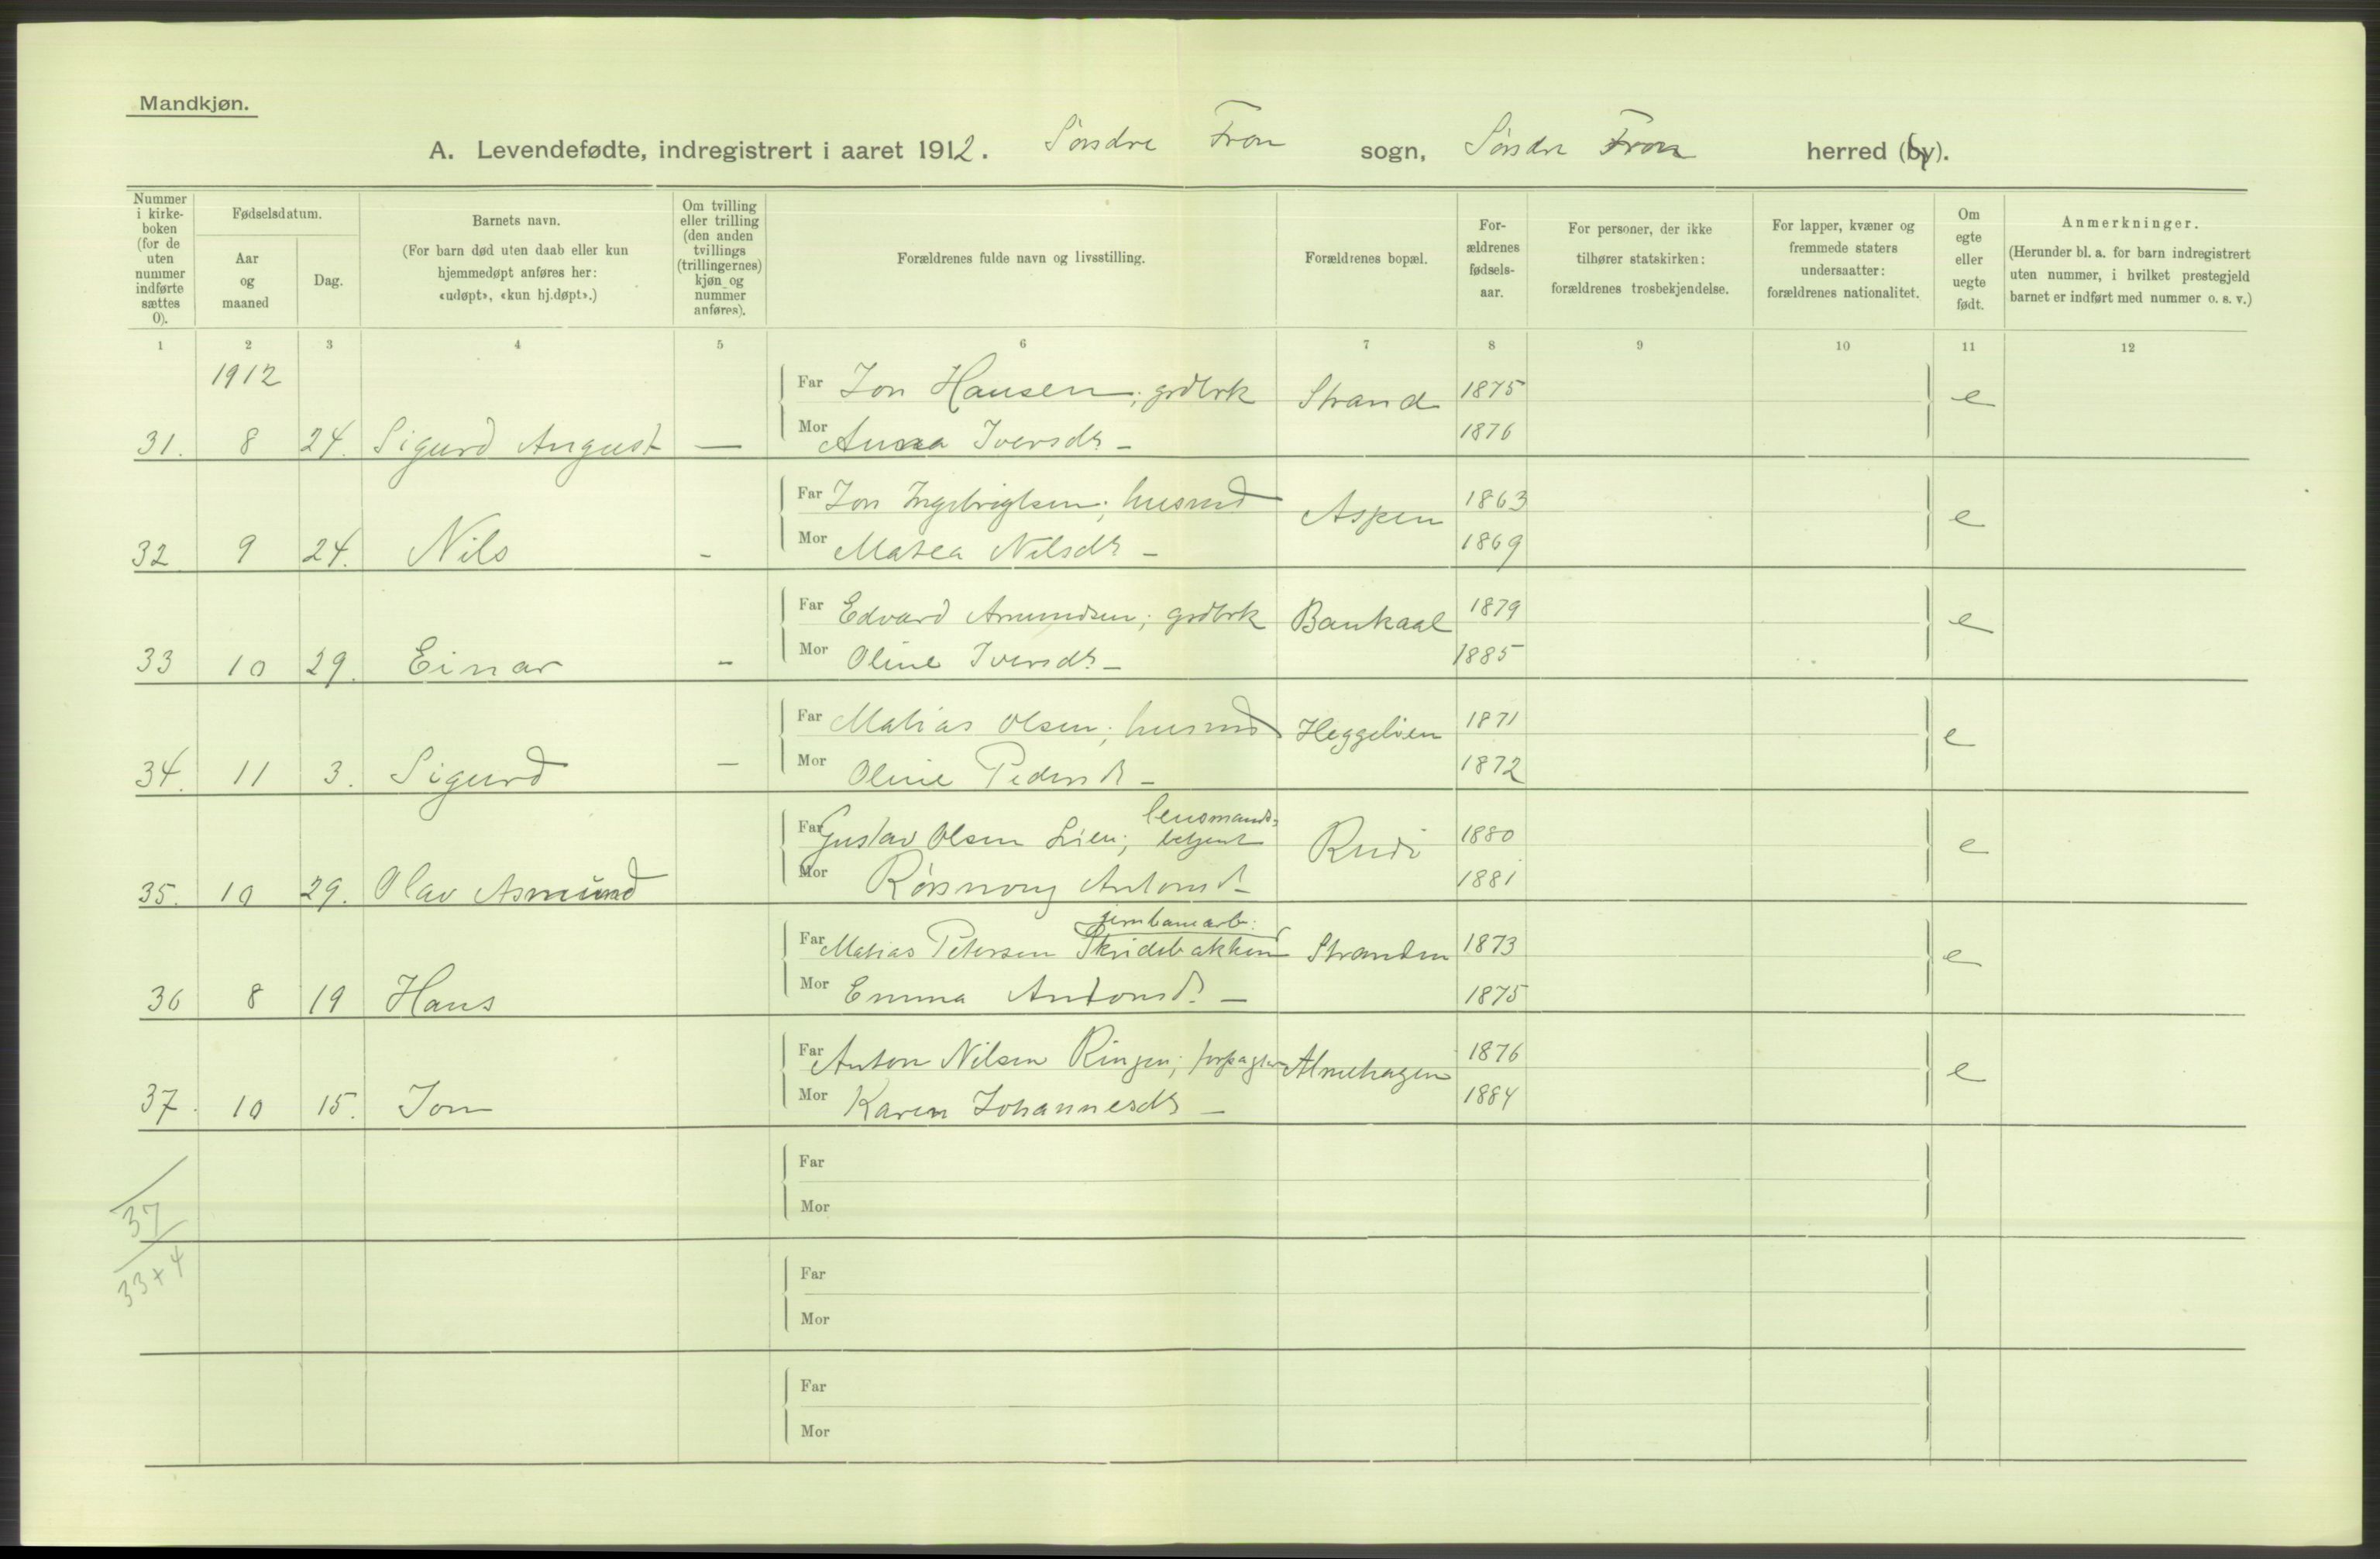 Mandkjøn.
A. Levendefødte, indregistrert i aaret 1912. Søndre Fron sogn, Søndre Fron herred (by).
Nummer i kirke-boken (for de uten nummer indførte sættes 0).
Fødselsdatum.
Aar og maaned
Dag.
Barnets navn.
(For barn død uten daab eller kun hjemmedøpt anføres her: «udøpt», «kun hj.døpt».)
Om tvilling eller trilling (den anden tvillings (trillingernes) kjøn og nummer anføres).
Forældrenes fulde navn og livsstilling.
Forældrenes bopæl.
For-ældrenes fødsels-aar.
For personer, der ikke tilhører statskirken: forældrenes trosbekjendelse.
For lapper, kvæner og fremmede staters undersaatter: forældrenes nationalitet.
Om egte eller uegte født.
Anmerkninger.
(Herunder bl. a. for barn indregistrert uten nummer, i hvilket prestegjeld barnet er indført med nummer o. s. v.)
1 2 3 4 5 6 7 8 9 10 11 12
1912
Far Jon Hansen; grdbrk Strand 1875 e
31. 8 24. Sigurd August — Mor Anna Iversdr — 1876
Far Jon Ingebrigtsen; husmd Aspen 1863 e
32 9 24. Nils - Mor Matea Nilsdr — 1869
Far Edvard Amundsen; grdbrk Baukaal 1879 e
33 10 29. Einar - Mor Oline Iversdr — 1885
Far Matias Olsen; husmd Heggelien 1871 e
34. 11 3. Sigurd — Mor Oline Pedersdr — 1872
lensmands-
Far Gustav Olsen Lien; betjent Rudi 1880 e
35. 10 29. Olav Asmund Mor Antonsdr 1881
jernbanearb.
Far Matias Petersen Skridebakken Stranden 1873 e
36 8 19 Hans Mor Emma Antonsdr — 1875
Far Anton Nilsen Ringen; forpagter Almehagen 1876 e
37. 10 15. Jon Mor Karen Johannesdr — 1884
Far
37
Mor
33+4
Far
Mor
Far
Mor